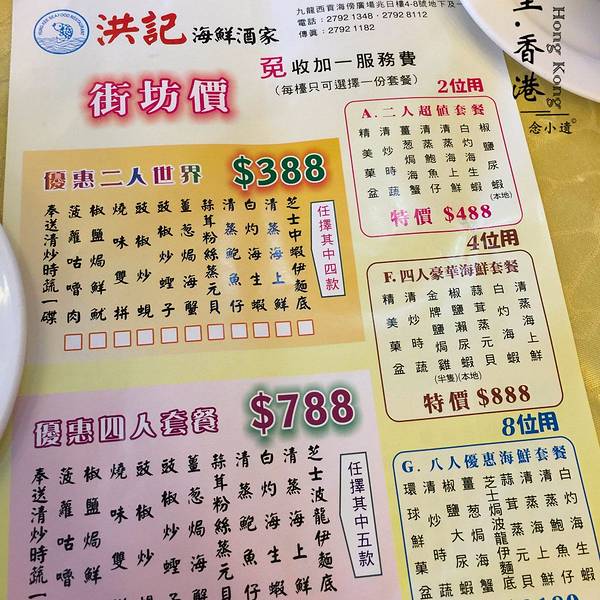 洪記海鮮酒家
HUNG KEE SEAFOOD RESTAURANT
九龍西貢海傍廣場兆日樓4-8號地下及一
電話：2792 1348 · 2792 8112
傳真：2792 1182
街坊價
免收加一服務費
（每檯只可選擇一份套餐）
里·香港
Hong Kong
念小遠
優惠二人世界 $388
芝士中蝦伊麵底
清蒸海上鮮
白灼海生蝦
清蒸鮑魚仔
蒜茸粉絲蒸元貝
薑葱焗海蟹
豉椒炒蟶子
豉椒炒蜆
燒味雙拼
椒鹽焗鮮魷
菠蘿咕嚕肉
奉送清炒時蔬一碟
任擇其中四款
2位用
A.二人超值套餐
椒鹽蝦(本地)
白灼海生蝦
清蒸海上鮮
清蒸鮑魚仔
薑葱焗海蟹
清炒時蔬
精美菓盆
特價 $488
4位用
F.四人豪華海鮮套餐
清蒸海上鮮
白灼海蝦
蒜茸蒸元貝
椒鹽瀨尿蝦(本地)
金牌焗雞(半隻)
清炒時蔬
精美菓盆
特價 $888
優惠四人套餐 $788
芝士波龍伊麵底
清蒸海上鮮
白灼海生蝦
清蒸鮑魚仔
蒜茸粉絲蒸元貝
薑葱焗海蟹
豉椒炒蟶子
豉椒炒
燒味雙
椒鹽焗鮮
菠蘿咕嚕
奉送清炒時蔬一
任擇其中五款
8位用
G.八人優惠海鮮套餐
白灼海生蝦
清蒸海上鮮
清蒸鮑魚仔
蒜茸蒸元貝
芝士焗波龍伊麵底
薑葱焗蟹
椒鹽大尿蝦
清炒時蔬
環球鮮菓盆